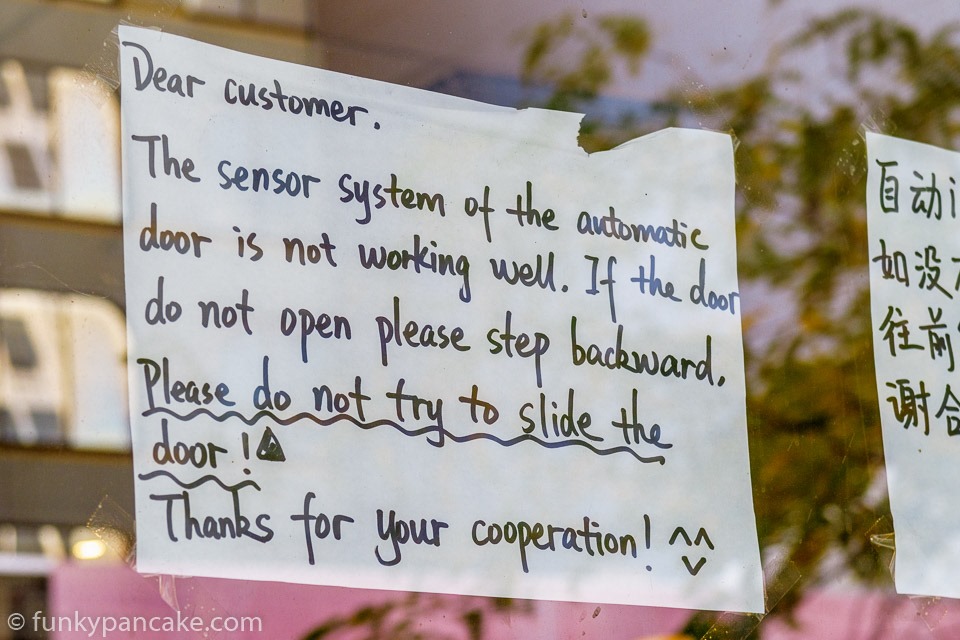 Dear customer.
The sensor system of the automatic
door is not working well. If the door
do not open please step backward.
Please do not try to slide the
door !
Thanks for your cooperation! ^^
自动
如没
往前
谢合
© funkypancake.com